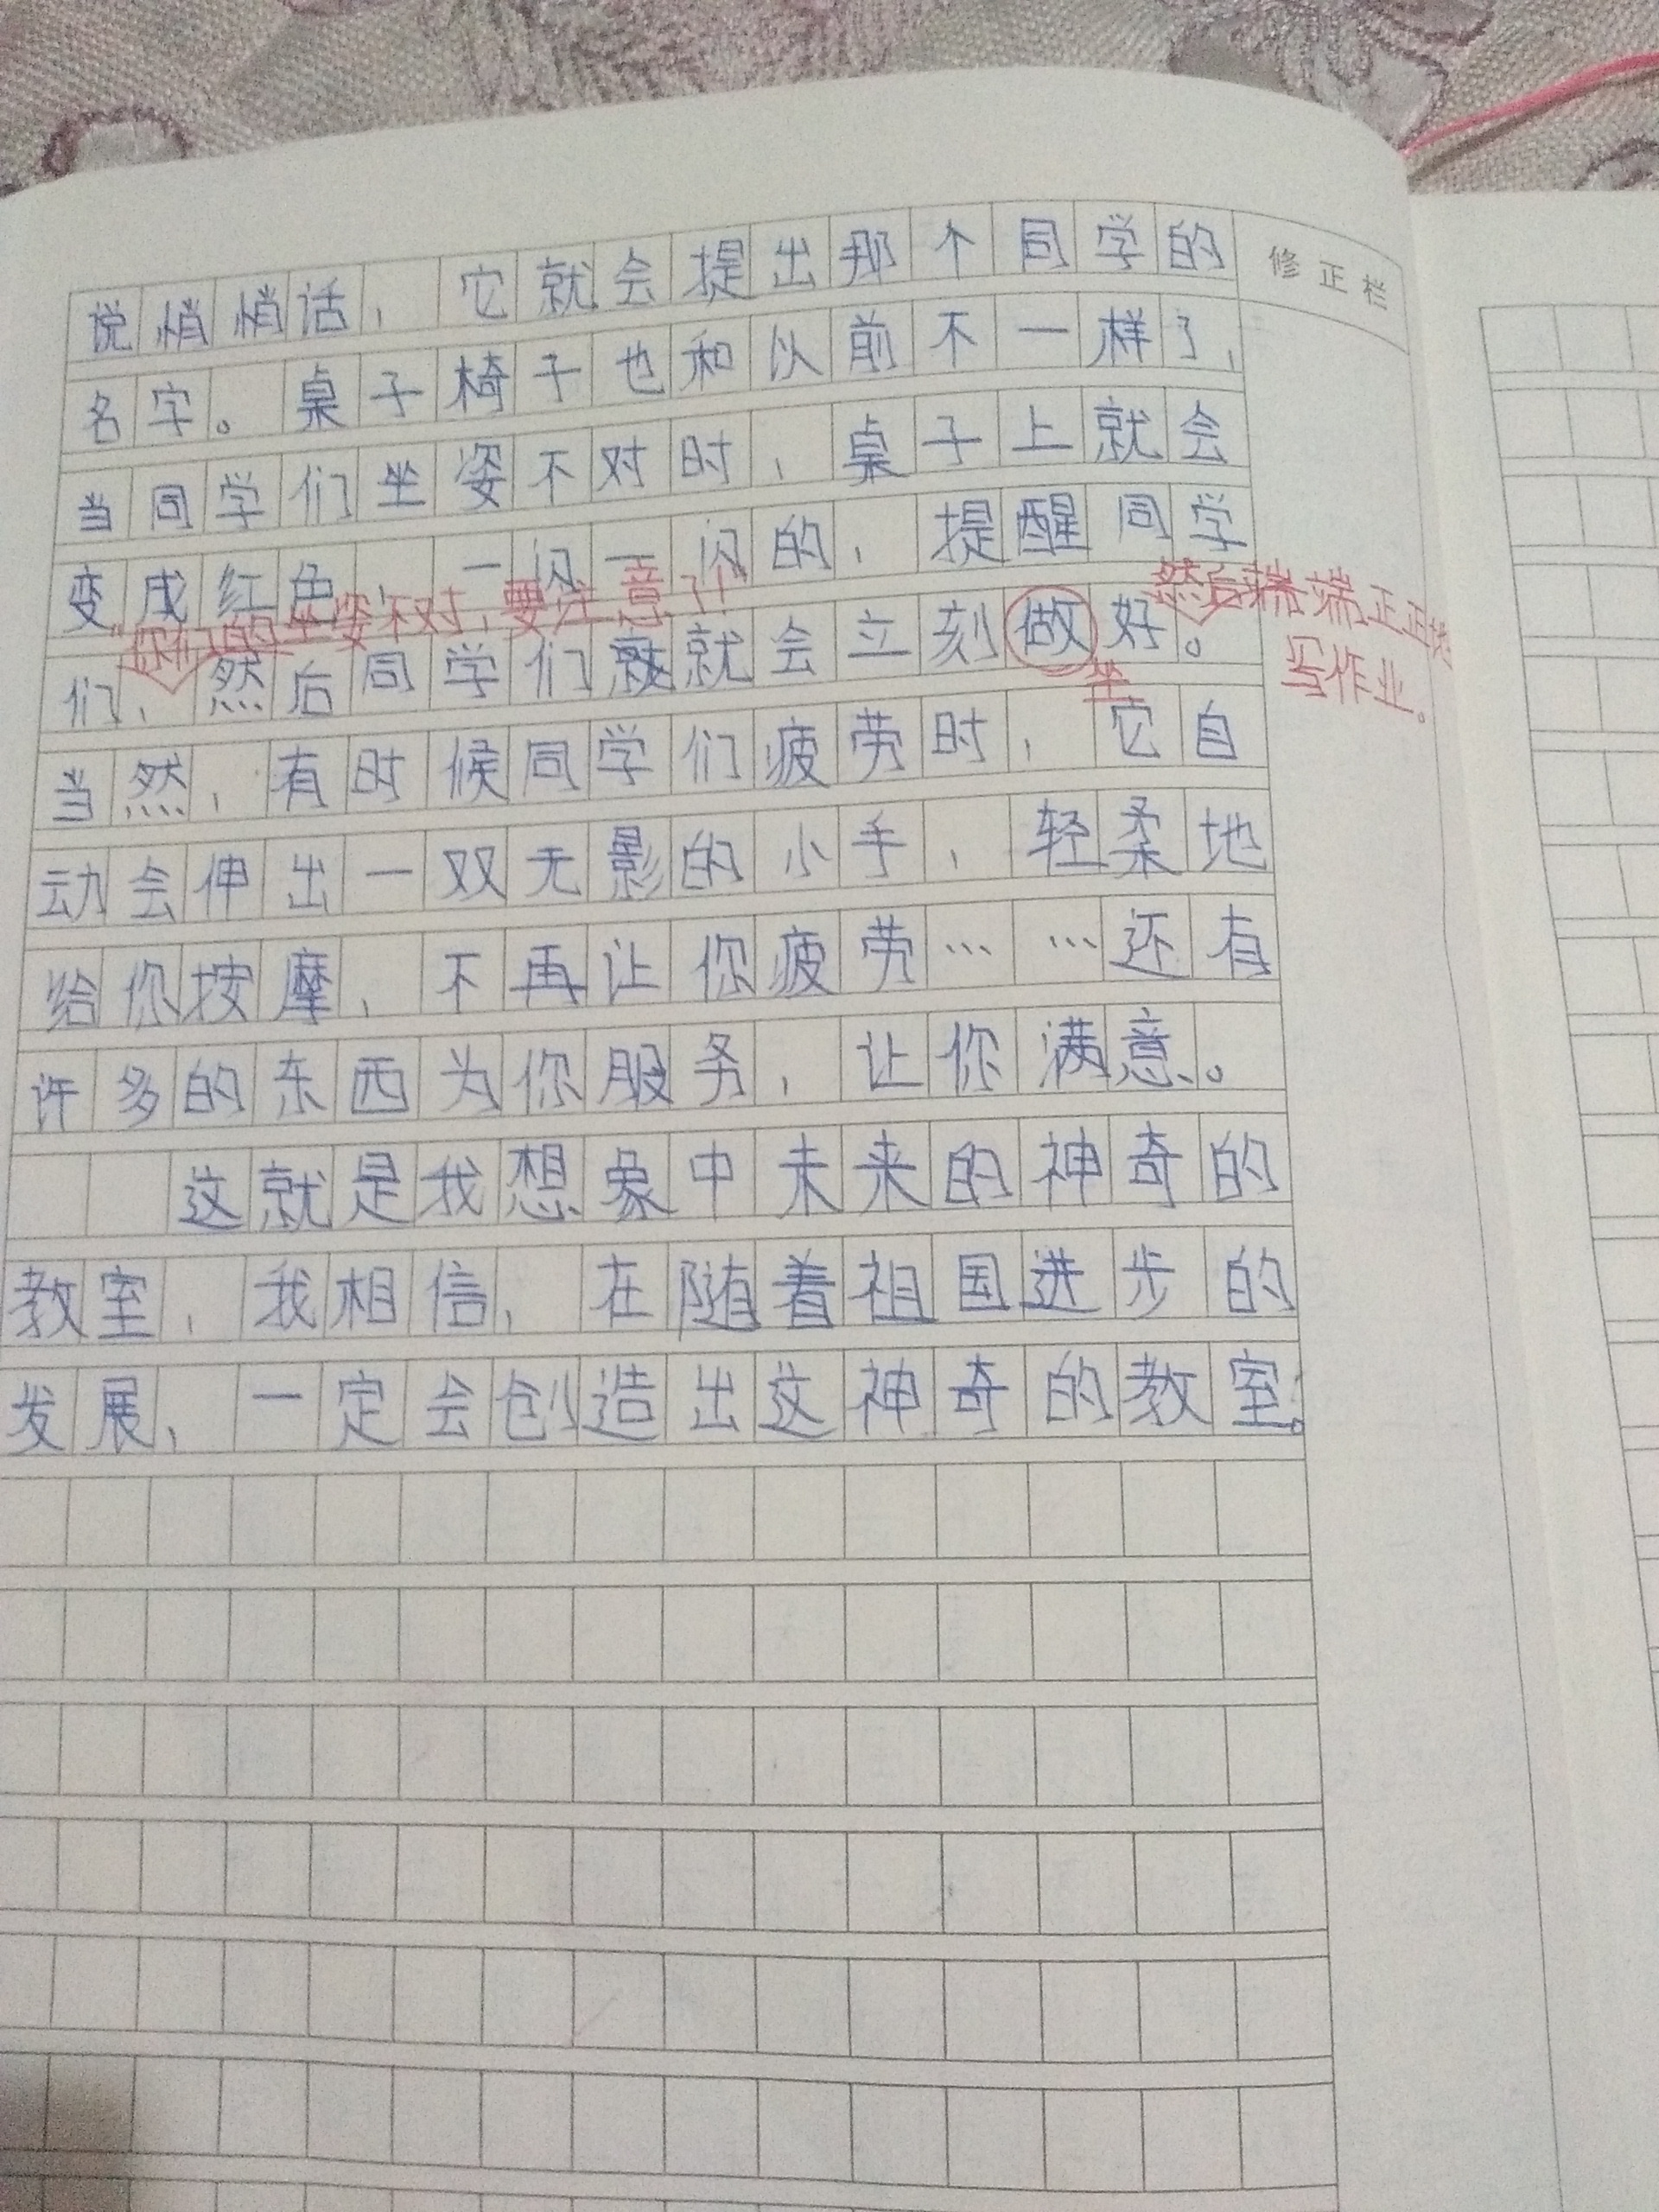 修正栏
说悄悄话，它就会提出那个同学的
名字。桌子椅子也和以前不一样了，
当同学们坐姿不对时，桌子上就会
变成红色，一闪一闪的，提醒同学
“你们的坐姿不对，要注意了！”
然后端端正正地
们，然后同学们就就会立刻做好。
坐
写作业。
当然，有时候同学们疲劳时，它自
动会伸出一双无影的小手，轻柔地
给你按摩，不再让你疲劳……还有
许多的东西为你服务，让你满意。
这就是我想象中未来的神奇的
教室，我相信，在随着祖国进步的
发展，一定会创造出这神奇的教室。